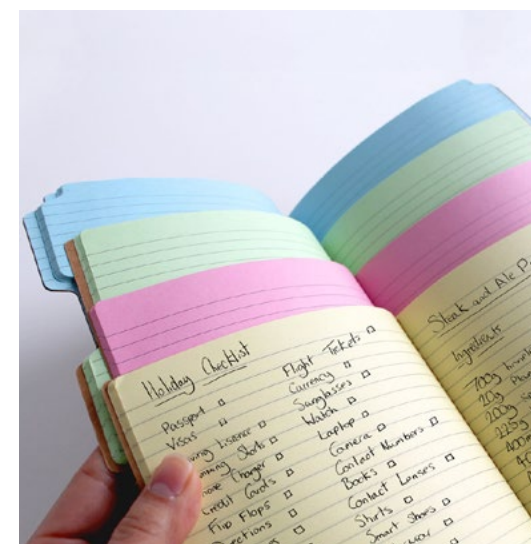 Holiday Checklist
Passport
Visas
Licence
Shorts
Charger
Credit Cards
Flip Flops
Flight Tickets
Currency
Sunglasses
Watch
Laptop
Camera
Contact Numbers
Books
Contact Lenses
Shirts
Smart Shoes
Steak and Ale
Ingredients
700g
20g
200g
225g